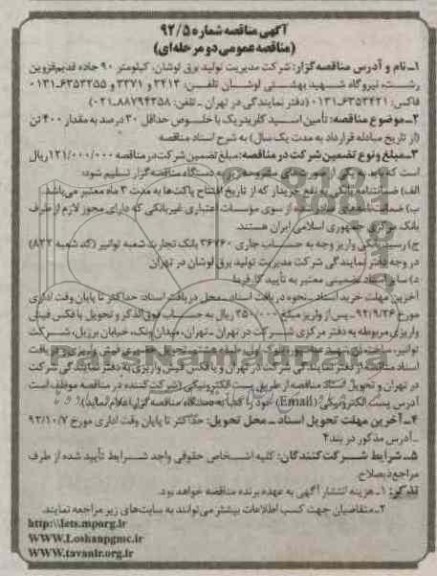 آگهی مناقصه شماره ۹۲/۵
(مناقصه عمومی دو مرحله‌ای)
۱ـ نام و آدرس مناقصه‌گزار: شرکت مدیریت تولید برق لوشان، کیلومتر ۹۰ جاده قدیم قزوین
رشت، نیروگاه شهید بهشتی لوشان تلفن: ۲۴۱۳ و ۳۳۷۱ و ۶۳۵۳۲۵۵-۰۱۳۱
فاکس: ۶۳۵۳۴۲۱-۰۱۳۱ (دفتر نمایندگی در تهران ـ تلفن: ۸۸۷۹۴۳۵۸-۰۲۱)
۲ـ موضوع مناقصه: تأمین اسید کلریدریک با خلوص حداقل ۳۰ درصد به مقدار ۴۰۰ تن
(از تاریخ مبادله قرارداد به مدت یک سال) به شرح اسناد مناقصه
۳ـ مبلغ و نوع تضمین شرکت در مناقصه: مبلغ تضمین شرکت در مناقصه ۱۲۱/۰۰۰/۰۰۰ ریال
است که باید به یکی از صورت‌های مشروحه زیر به دستگاه مناقصه‌گزار تسلیم شود:
الف) ضمانتنامه بانکی به نفع خریدار که از تاریخ افتتاح پاکت‌ها به مدت ۳ ماه معتبر می‌باشد
ب) ضمانتنامه‌های صادر شده از سوی مؤسسات اعتباری غیربانکی که دارای مجوز لازم از طرف
بانک مرکزی جمهوری اسلامی ایران هستند.
ج) رسید بانکی واریز وجه به حساب جاری ۳۶۷۶۰ بانک تجارت شعبه توانیر (کد شعبه ۸۳۲)
در وجه دفتر نمایندگی شرکت مدیریت تولید برق لوشان در تهران
د) سایر اسناد تضمینی معتبر به تأیید کارفرما
آخرین مهلت خرید اسناد ـ نحوه دریافت اسناد ـ محل دریافت اسناد: حداکثر تا پایان وقت اداری
مورخ ۹۲/۹/۲۶ ـ پس از واریز مبلغ ۲۵۰/۰۰۰ ریال به حساب فوق‌الذکر و تحویل یا فکس فیش
واریزی مربوطه به دفتر مرکزی شرکت در تهران ـ تهران، میدان ونک، خیابان برزیل، شرکت
توانیر، فیش واریزی دریافت
اسناد مناقصه از دفتر نمایندگی شرکت در تهران و یا فکس فیش واریزی به دفتر نمایندگی شرکت
در تهران و تحویل اسناد مناقصه از طریق پست الکترونیکی (شرکت‌کننده در مناقصه موظف است
آدرس پست الکترونیکی (Email) خود را کتباً به دستگاه مناقصه‌گزار اعلام نماید)
۴ـ آخرین مهلت تحویل اسناد ـ محل تحویل: حداکثر تا پایان وقت اداری مورخ ۹۲/۱۰/۷
ـ آدرس مذکور در بند ۴
۵ـ شرایط شرکت‌کنندگان: کلیه اشخاص حقوقی واجد شرایط تأیید شده از طرف
مراجع ذیصلاح.
تذکر: ۱ـ هزینه انتشار آگهی به عهده برنده مناقصه خواهد بود.
۲ـ متقاضیان جهت کسب اطلاعات بیشتر می‌توانند به سایت‌های زیر مراجعه نمایند.
http://iets.mporg.ir
WWW.Loshanpgmc.ir
WWW.tavanir.org.ir
ParsNamadData